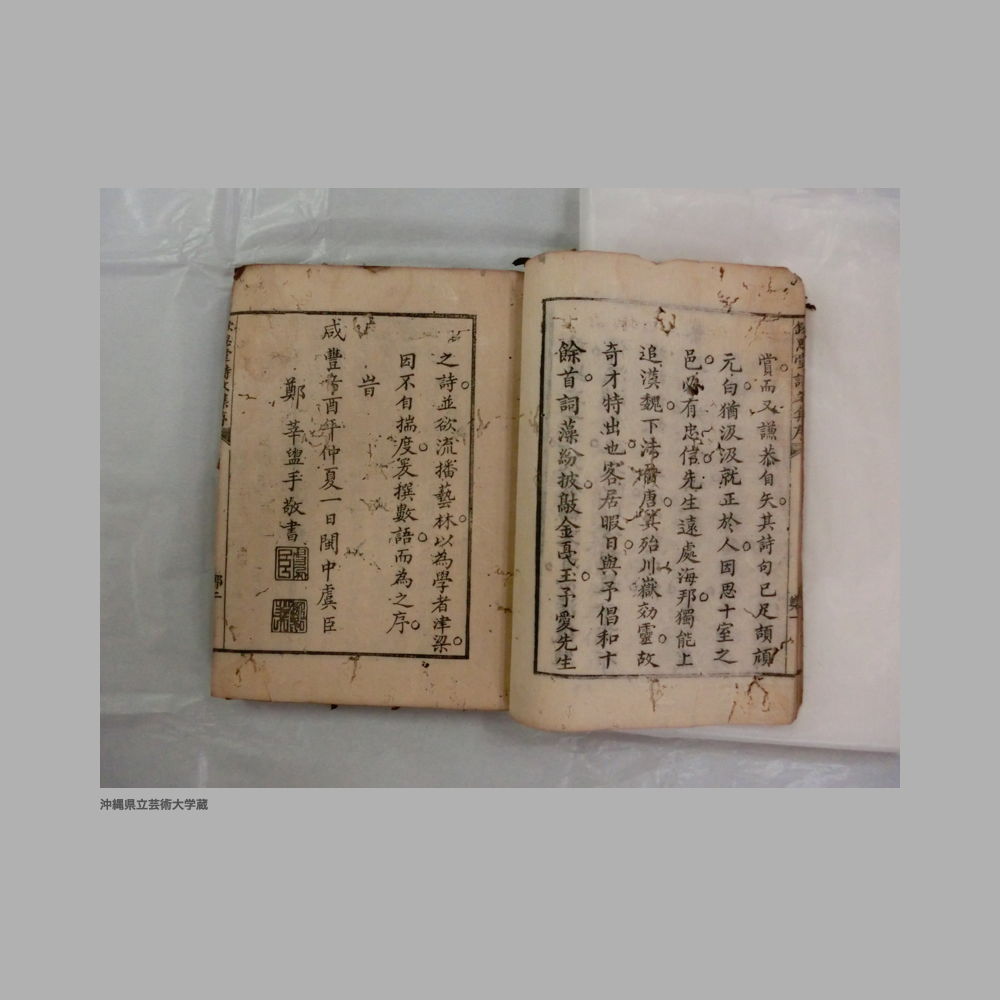 賞而又謙恭自矢其詩句已足頡頏
元白猶汲汲就正於人因思十室之
邑必有忠信先生遠處海邦獨能上
追漢魏下沛唐冀殆川嶽効靈故
奇才特出也客居暇日與予倡和十
餘首詞藻紛披敲金戛玉予愛先生
之詩並欲流播藝林以為學者津梁
因不自揣度爰撰數語而為之序
旹
咸豐辛酉年仲夏一日閩中虞臣
鄭 莘盥手敬書
沖縄県立芸術大学蔵